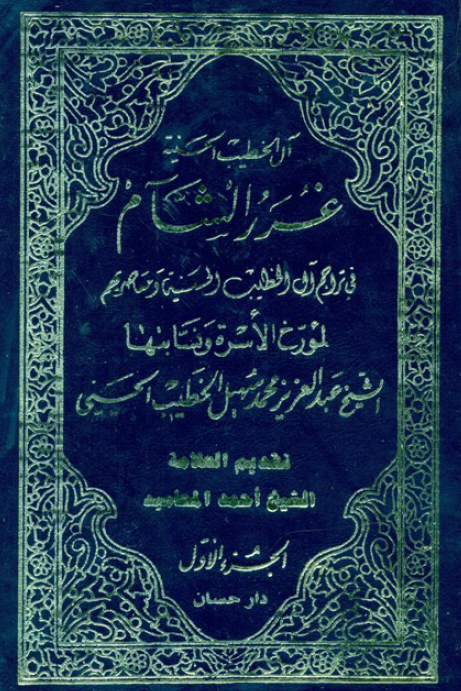 آل الخطيب الحسنية
غُرَرُ الشآم
في تراجم آل الخطيب الحسنية ومعاصريهم
لمؤرخ الأسرة ونسابتها
الشيخ عبد العزيز محمد سهيل الخطيب الحسني
تقديم العلامة
الشيخ أحمد المحاميد
الجزء الأول
دار حسان